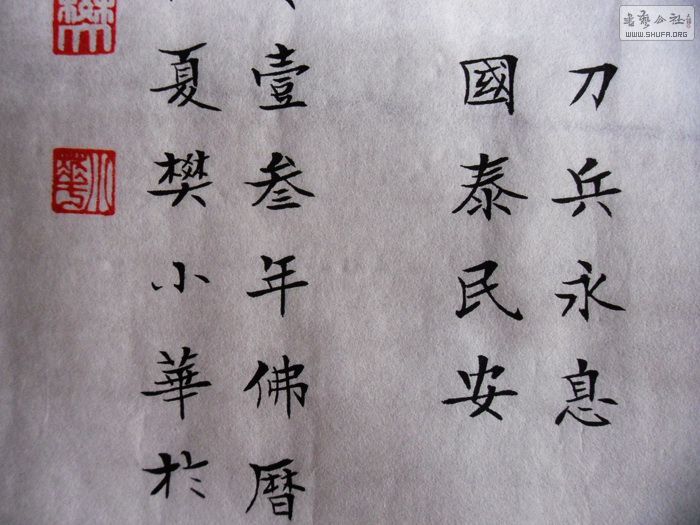 刀兵永息
國泰民安
壹叁年佛曆
夏樊小華於
樊
小華
书艺公社
WWW.SHUFA.ORG